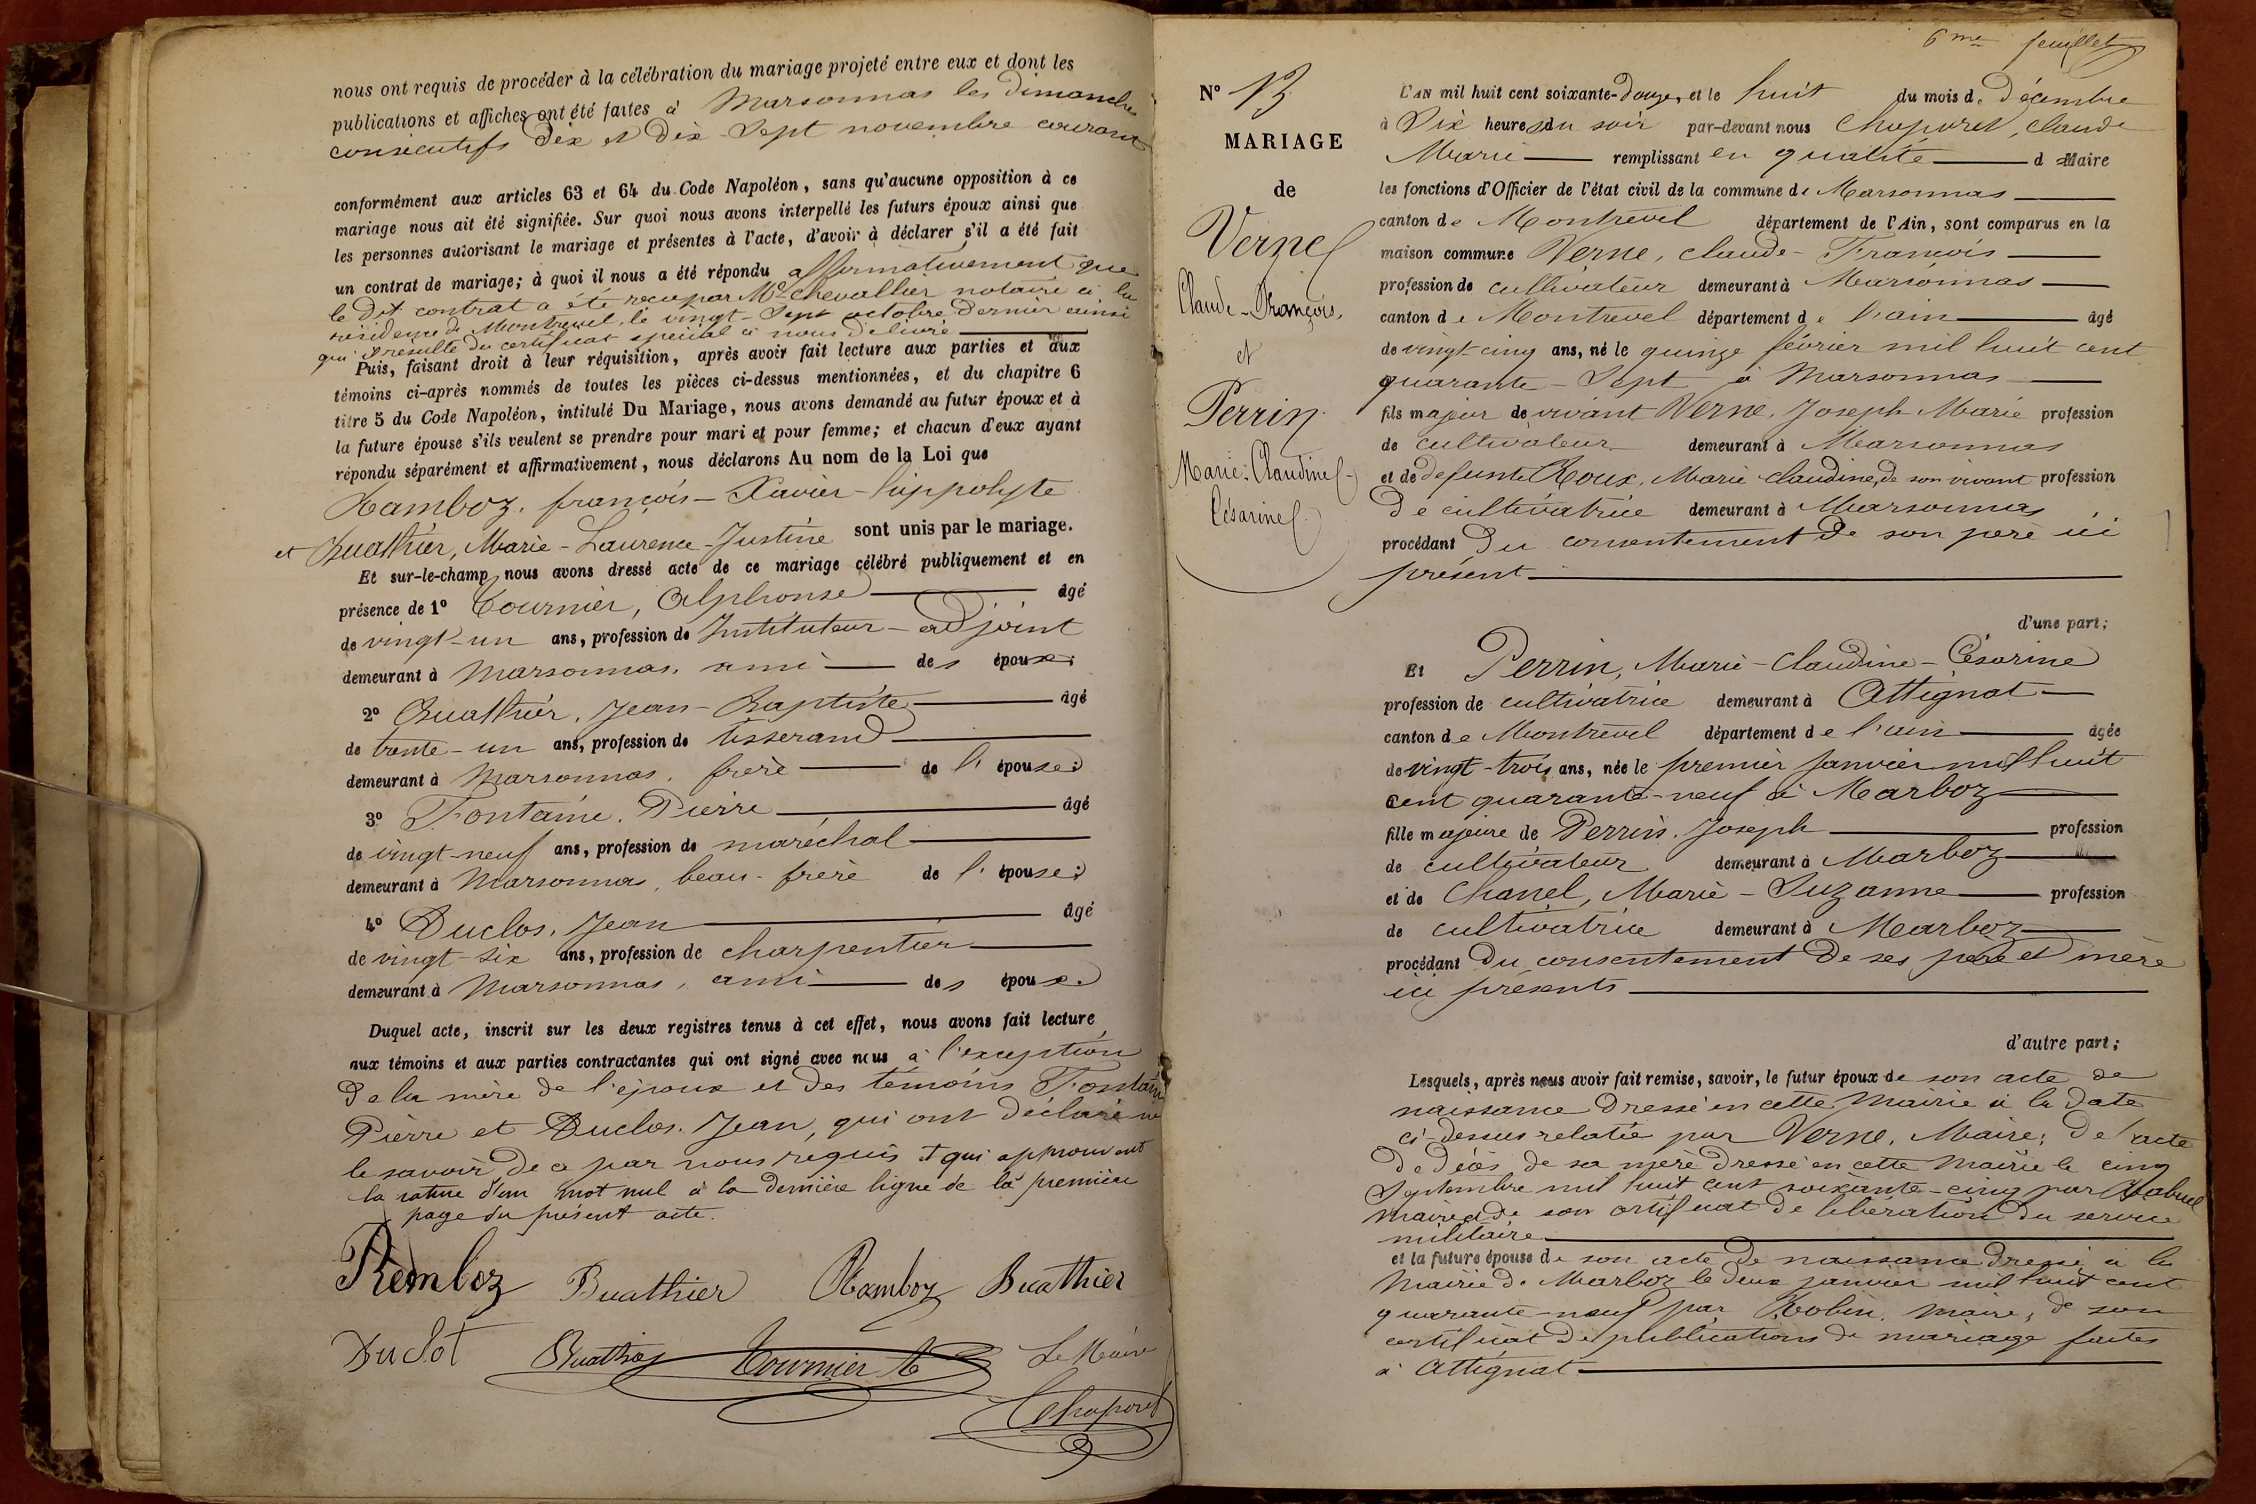 nous ont requis de procéder à la célébration du mariage projeté entre eux et dont les
publications et affiches ont été faites à Marsonnas les dimanches
consécutifs dix et dix-sept novembre courant
conformément aux articles 63 et 64 du Code Napoléon, sans qu'aucune opposition à ce
mariage nous ait été signifiée. Sur quoi nous avons interpellé les futurs époux ainsi que
les personnes autorisant le mariage et présentes à l'acte, d'avoir à déclarer s'il a été fait
un contrat de mariage; à quoi il nous a été répondu affirmativement que
le dit contrat a été reçu par Me Chevallier notaire à la
résidence de Montrevel, le vingt-sept octobre dernier ainsi
qu'il résulte du certificat spécial à nous délivré
Puis, faisant droit à leur réquisition, après avoir fait lecture aux parties et aux
témoins ci-après nommés de toutes les pièces ci-dessus mentionnées, et du chapitre 6
titre 5 du Code Napoléon, intitulé Du Mariage, nous avons demandé au futur époux et à
la future épouse s'ils veulent se prendre pour mari et pour femme; et chacun d'eux ayant
répondu séparément et affirmativement, nous déclarons Au nom de la Loi que
Ramboz, françois-Xavier-hippolyte
et Buathier, Marie-Laurence-Justine sont unis par le mariage.
Et sur-le-champ nous avons dressé acte de ce mariage célébré publiquement et en
présence de 1° Tournier, Alphonse âgé
de vingt-un ans, profession de Instituteur-adjoint
demeurant à Marsonnas, ami des époux;
2° Buathier, Jean-Baptiste âgé
de trente-un ans, profession de tisserand
demeurant à Marsonnas, frère de l'épouse;
3° Fontaine, Pierre âgé
de vingt-neuf ans, profession de maréchal
demeurant à Marsonnas, beau-frère de l'épouse;
4° Duclos, Jean âgé
de vingt-six ans, profession de charpentier
demeurant à Marsonnas, ami des époux.
Duquel acte, inscrit sur les deux registres tenus à cet effet, nous avons fait lecture
aux témoins et aux parties contractantes qui ont signé avec nous à l'exception
de la mère de l'époux et des témoins Fontaine
Pierre et Duclos, Jean, qui ont déclaré ne
le savoir de ce par nous requis et qui approuvent
la rature d'un mot nul à la dernière ligne de la première
page du présent acte.
Ramboz Buathier Ramboz Buathier
Duclot Buathier Tournier A Le Maire
Chaporet
6me feuillet
N° 13
MARIAGE
de
Verne
Claude-François,
et
Perrin
Marie-Claudine-
Césarine
L'AN mil huit cent soixante-douze, et le huit du mois de décembre
à Six heures du soir par-devant nous Chaporet, Claude
Marie remplissant en qualité de Maire
les fonctions d'Officier de l'état civil de la commune de Marsonnas
canton de Montrevel département de l'Ain, sont comparus en la
maison commune Verne, Claude-François
profession de cultivateur demeurant à Marsonnas
canton de Montrevel département de l'ain âgé
de vingt-cinq ans, né le quinze février mil huit cent
quarante-Sept à Marsonnas
fils majeur de vivant Verne, Joseph Marie profession
de cultivateur demeurant à Marsonnas
et de défunte Roux, Marie Claudine, de son vivant profession
de cultivatrice demeurant à Marsonnas
procédant du consentement de son père ici
présent
d'une part;
Et Perrin, Marie-Claudine-Césarine
profession de cultivatrice demeurant à Attignat
canton de Montrevel département de l'ain âgée
de vingt-trois ans, née le premier Janvier mil huit
cent quarante-neuf à Marboz
fille majeure de Perrin, Joseph profession
de cultivateur demeurant à Marboz
et de Chanel, Marie-Suzanne profession
de cultivatrice demeurant à Marboz
procédant du consentement de ses père et mère
ici présents
d'autre part;
Lesquels, après nous avoir fait remise, savoir, le futur époux de son acte de
naissance dressé en cette Mairie à la date
ci-dessus relatée par Verne, Maire; de l'acte
de décès de sa mère dressé en cette Mairie le cinq
Septembre mil huit cent soixante-cinq par
Maire et de son certificat de libération du service
militaire
et la future épouse de son acte de naissance dressé à la
Mairie de Marboz le deux janvier mil huit cent
quarante-neuf par Robin, Maire, de son
certificat de publications de mariage faites
à Attignat